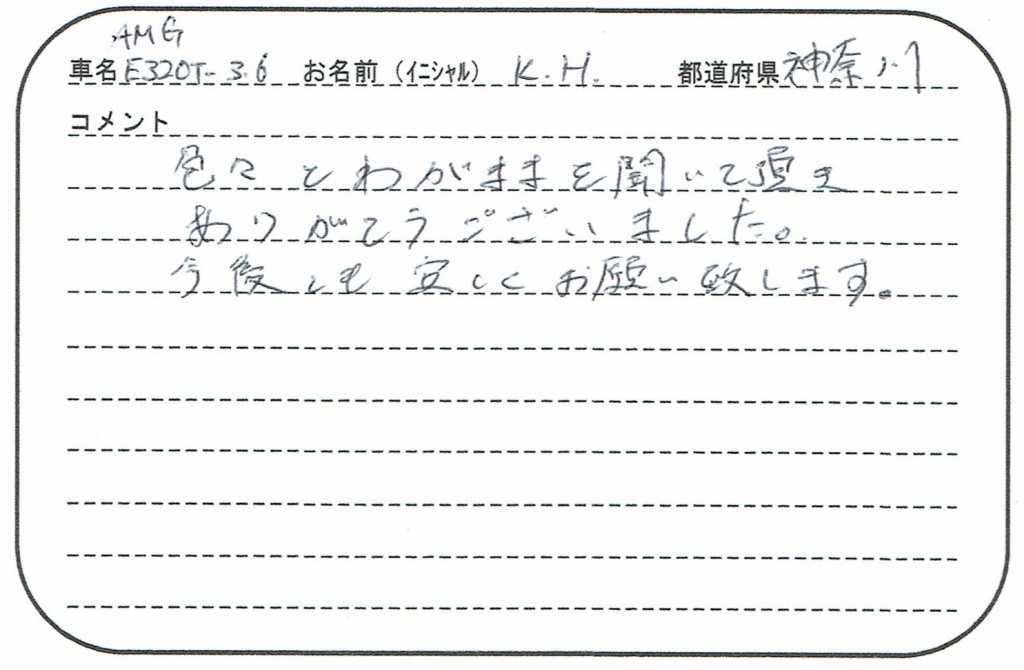 AMG
車名 E320T-3.6 お名前（ｲﾆｼｬﾙ） K.H. 都道府県 神奈川
コメント
色々とわがままを聞いて頂き
ありがとうございました。
今後とも宜しくお願い致します。